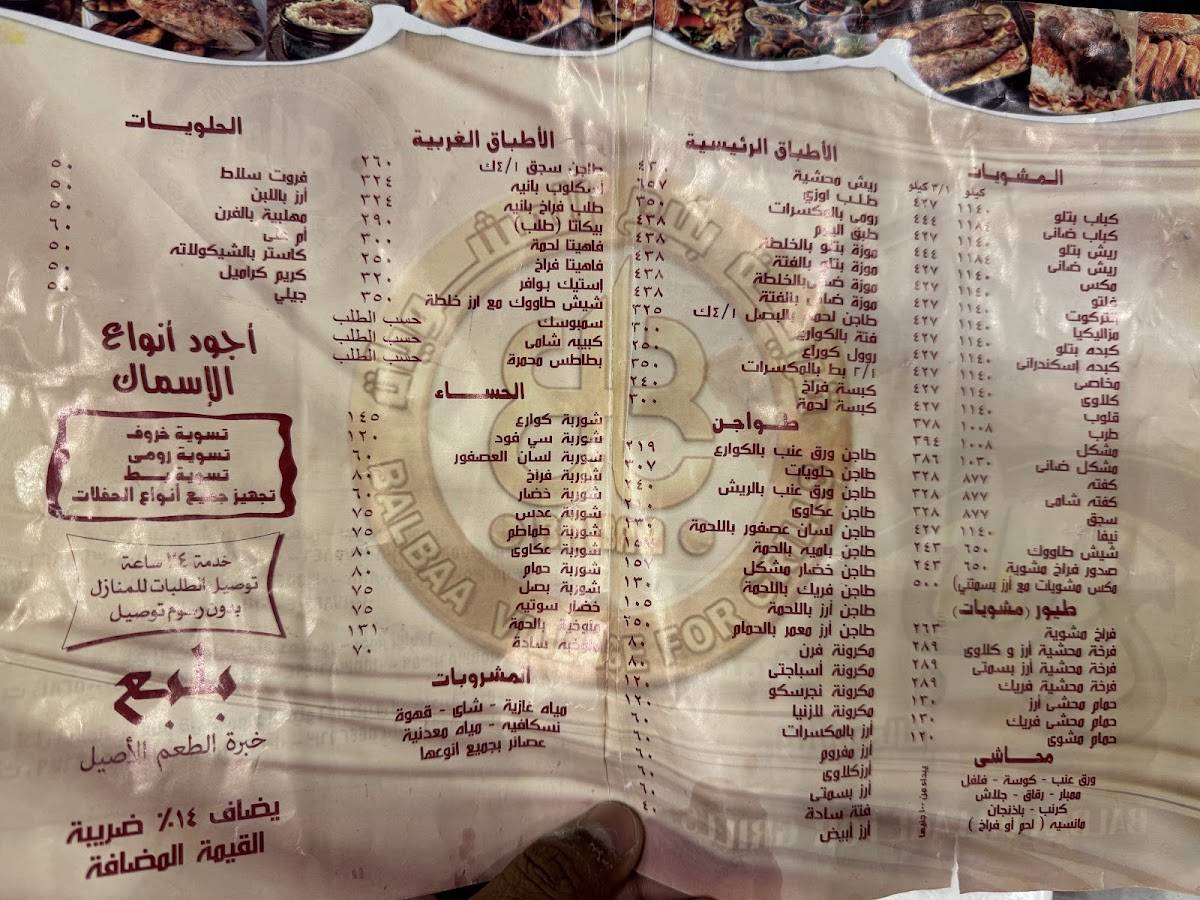 المشويات
كيلو ٣/١ كيلو
كباب بتلو ١١٤٠ ٤٢٧
كباب ضانى ١١٨٤ ٤٤٤
ريش بتلو ١١٤٠ ٤٢٧
ريش ضانى ١١٨٤ ٤٤٤
مكس ١١٤٠ ٤٢٧
فلتو ١١٤٠ ٤٢٧
انتركوت ١١٤٠ ٤٢٧
مزاليكيا ١١٤٠ ٤٢٧
كبده بتلو ١١٤٠ ٤٢٧
كبده إسكندرانى ١١٤٠ ٤٢٧
مخاصى ١١٤٠ ٤٢٧
كلاوى ١١٤٠ ٤٢٧
قلوب
طرب ١٠٠٨ ٣٧٨
مشكل ١٠٠٨ ٣٩٤
مشكل ضانى ١٠٣٠ ٣٨٦
كفته ٨٧٧ ٣٢٨
كفته شامى ٨٧٧ ٣٢٨
سجق ٨٧٧ ٣٢٨
نيفا ١١٤٠ ٤٢٧
شيش طاووك ٦٥٠ ٢٤٣
صدور فراخ مشوية ٦٥٠ ٢٤٣
مكس مشويات مع أرز بسمتي) ٥٠٠
طيور (مشويات)
فراخ مشوية ٢٦٣
فرخة محشية أرز و كلاوى ٢٨٩
فرخة محشية أرز بسمتى ٢٨٩
فرخة محشية فريك ٢٨٩
حمام محشى أرز ١٣٠
حمام محشى فريك ١٣٠
حمام مشوى ١٢٠
محاشى
ورق عنب - كوسة - فلفل
ممبار - رقاق - جلاش
كرنب - باذنجان
مانسيه ( لحم أو فراخ )
يبداء من ١٠٠ جنيها
الأطباق الرئيسية
ريش محشية
طلب اوزي ٦٥٧
رومى بالمكسرات ٣٥٠
طبق اليوم ٤٣٨
موزة بتلو بالخلطة ٤٣٨
موزة بتلو بالفتة ٤٣٨
موزة ضانى بالخلطة ٤٣٨
موزة ضانى بالفتة ٤٣٨
طاجن لحمة بالبصل ٤/١ك ٣٢٥
فتة بالكوارع ٣٠٠
روول كوراع ٢٥٠
٢/١ بط بالمكسرات ٣٥٠
كبسة فراخ ٢٤٠
كبسة لحمة ٣٠٠
طواجن
طاجن ورق عنب بالكوارع ٢١٩
طاجن حلويات ٣٠٧
طاجن ورق عنب بالريش ٢٤٠
طاجن عكاوى
طاجن لسان عصفور باللحمة ١٣٠
طاجن باميه بالحمة
طاجن خضار مشكل ١٥٧
طاجن فريك باللحمة ١٣٠
طاجن أرز باللحمة ١٠٥
طاجن أرز معمر بالحمام ٢٥٠
مكرونة فرن ٨٠
مكرونة أسباجتى ٨٠
مكرونة نجرسكو ١٢٠
مكرونة لازنيا ١٢٠
أرز بالمكسرات ٦٠
أرز مفروم ٦٠
أرزكلاوى ٦٠
أرز بسمتى ٦٠
فتة سادة ٦٠
أرز أبيض ٤٠
الأطباق الغربية
طاجن سجق ٤/١ك ٢٦٠
إسكلوب بانيه ٣٢٤
طلب فراخ بانيه ٣٢٤
بيكاتا (طلب) ٢٩٠
فاهيتا لحمة ٣٠٠
فاهيتا فراخ ٢٥٠
إستيك بوافر ٣٢٠
شيش طاووك مع ارز خلطة ٣٥٠
سمبوسك حسب الطلب
كبيبه شامى حسب الطلب
بطاطس محمرة حسب الطلب
الحساء
شوربة كوارع ١٤٥
شوربة سي فود ١٢٠
شوربة لسان العصفور ٦٠
شوربة فراخ ٨٠
شوربة خضار ٦٠
شوربة عدس ٧٥
شوربة طماطم ٧٥
شوربة عكاوى ٨٠
شوربة حمام ٨٠
شوربة بصل ٧٥
خضار سوتيه ٧٥
ملوخية بالحمة ١٣١
ملوخيه سادة ٧٠
المشروبات
مياه غازية - شاى - قهوة
نسكافيه - مياه معدنية
عصائر بجميع انوعها
الحلويات
فروت سلاط ٥٠
أرز باللبن ٥٠
مهلبية بالفرن ٥٠
أم على ٦٠
كاستر بالشيكولاته ٥٠
كريم كراميل ٥٠
جيلي ٥٠
أجود أنواع
الإسماك
تسوية خروف
تسوية رومى
تسوية بط
تجهيز جميع أنواع الحفلات
خدمة ٢٤ ساعة
توصيل الطلبات للمنازل
بدون رسوم توصيل
بلبع
خبرة الطعم الأصيل
يضاف ١٤٪ ضريبة
القيمة المضافة
BALBAA VILLAGE FOR GRILLS